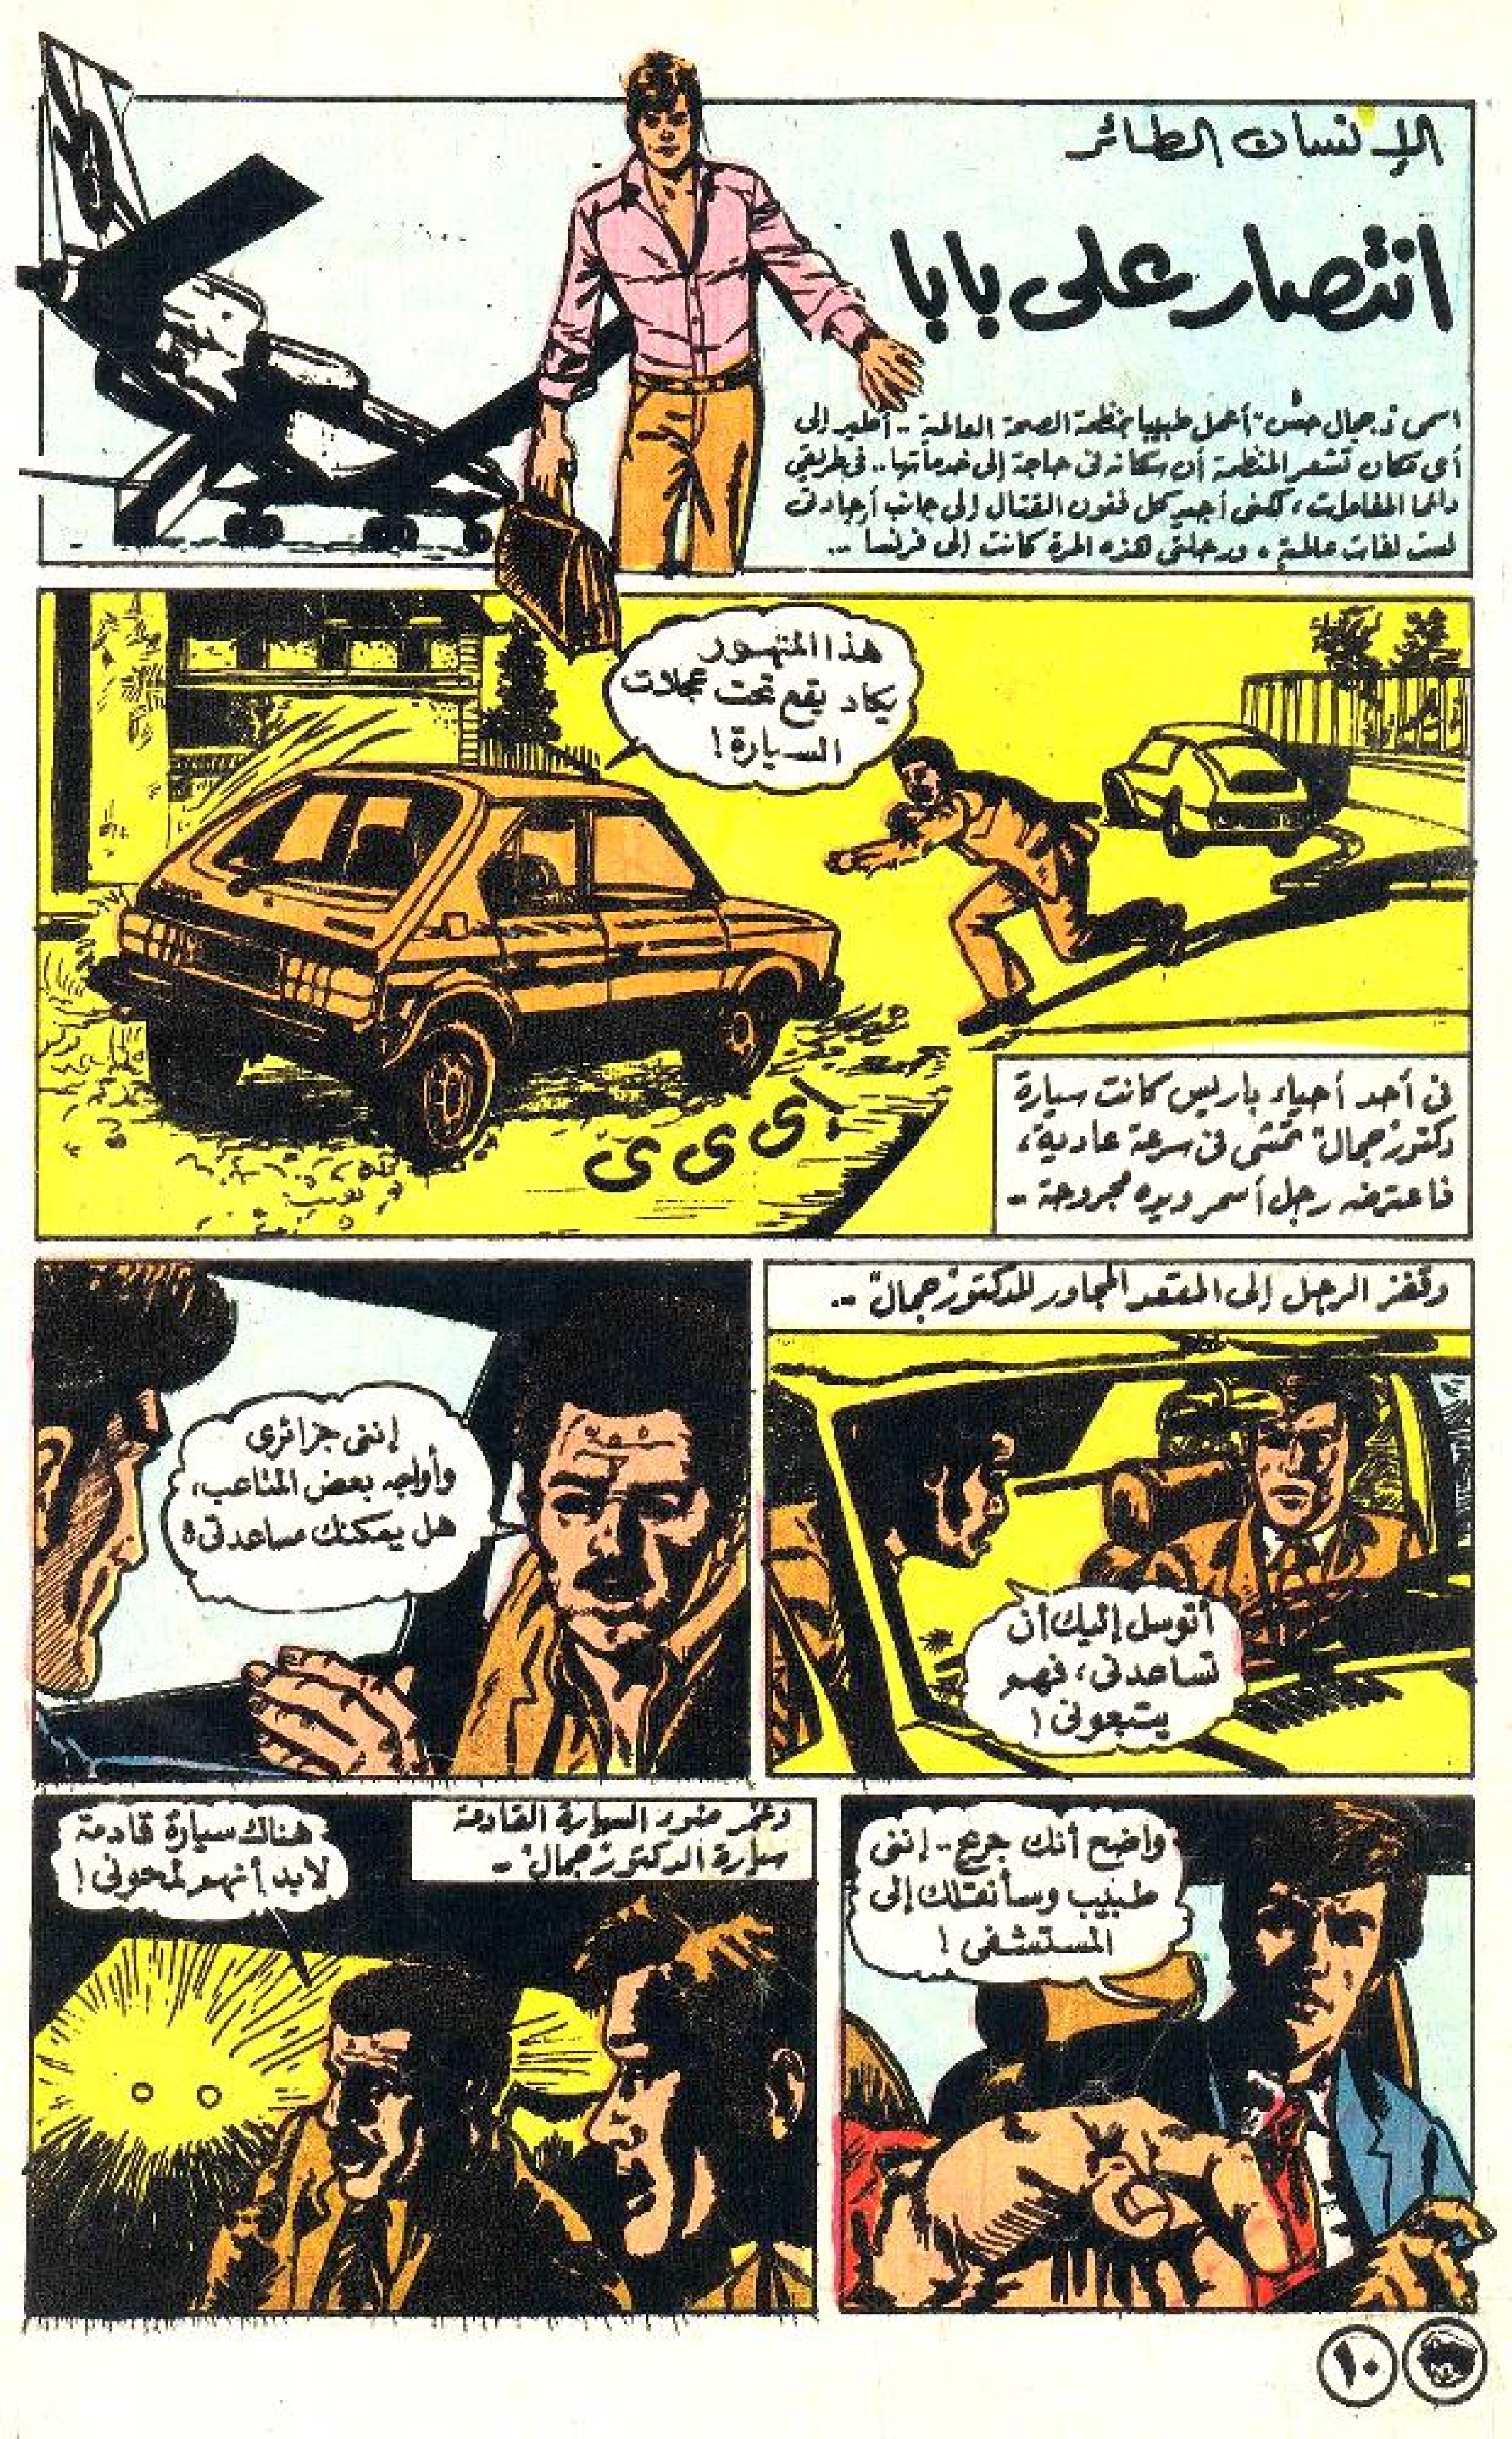 الإنسان الطائر
انتصار على بابا
اسمى "جمال حسن" أعمل طبيبا بمنظمة الصحة العالمية .. أطير إلى
أى مكان تشعر المنظمة أن سكانه فى حاجة إلى خدماتها .. فى طريقى
دائما المغامرات، لكنى أجيد كل فنون القتال إلى جانب إجادتى
لست لغات عالمية، ورحلتى هذه المرة كانت إلى فرنسا ..
هذا المتهور
يكاد يقع تحت عجلات
السيارة!
إى ى ى
فى أحد أحياء باريس كانت سيارة
دكتور "جمال" تمشى فى سرعة عادية،
فاعترضه رجل أسمر ويده مجروحة ..
وقفز الرجل إلى المقعد المجاور للدكتور "جمال" ..
أتوسل إليك أن
تساعدنى، فهم
يتبعونى!
إننى جزائرى
وأواجه بعض المتاعب،
هل يمكنك مساعدتى؟
واضح أنك جريح .. إننى
طبيب وسأنقلك إلى
المستشفى!
وغمر ضوء السيارة القادمة
سيارة الدكتور "جمال" ..
هناك سيارة قادمة
لابد أنهم لمحونى!
١٠